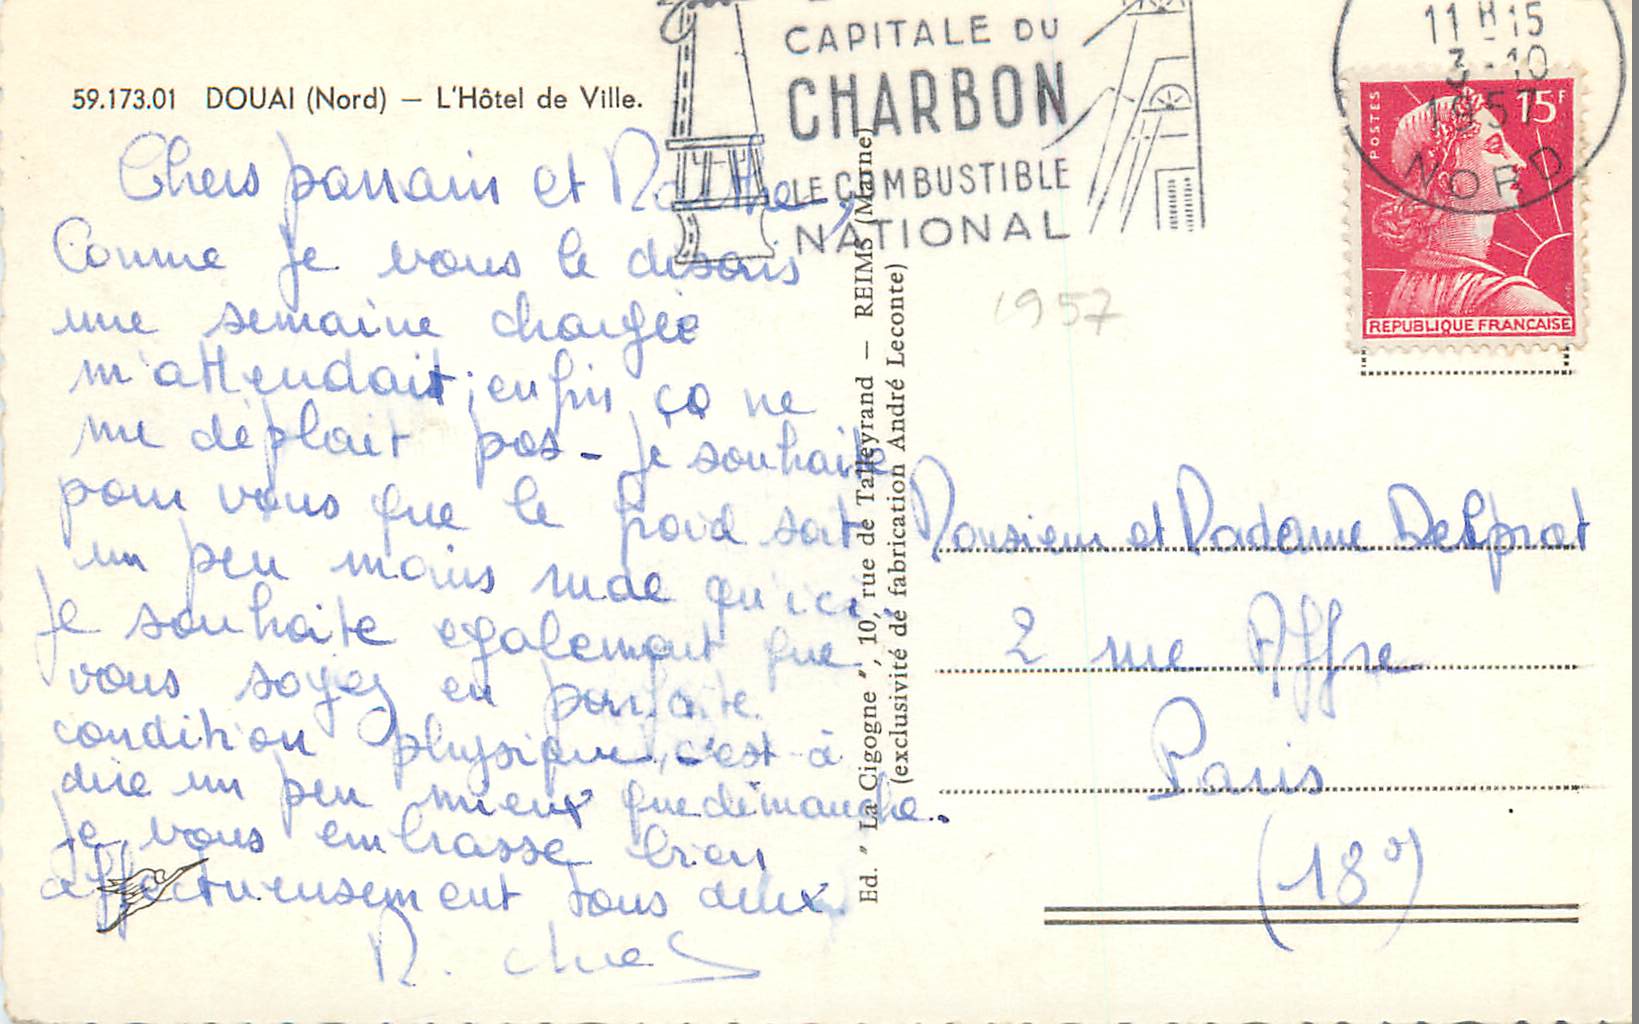 59.173.01 DOUAI (Nord) — L'Hôtel de Ville.
CAPITALE DU
CHARBON
LE COMBUSTIBLE
NATIONAL
11 H 15
3 - 10
1957
NORD
POSTES
15F
REPUBLIQUE FRANÇAISE
1957
Chers parrain et Marthe,
Comme je vous le disais
une semaine chargée
m'attendait; enfin ça ne
me déplait pas - Je souhaite
pour vous que le froid soit
un peu moins rude qu'ici.
Je souhaite également que
vous soyez en parfaite
condition physique, c'est-à
dire un peu mieux que dimanche.
Je vous embrasse bien
affectueusement tous deux.
M.
Ed. "La Cigogne", 10, rue de Talleyrand — REIMS (Marne)
(exclusivité de fabrication André Leconte)
Monsieur et Madame Delprat
2 rue Affre
Paris
(18e)